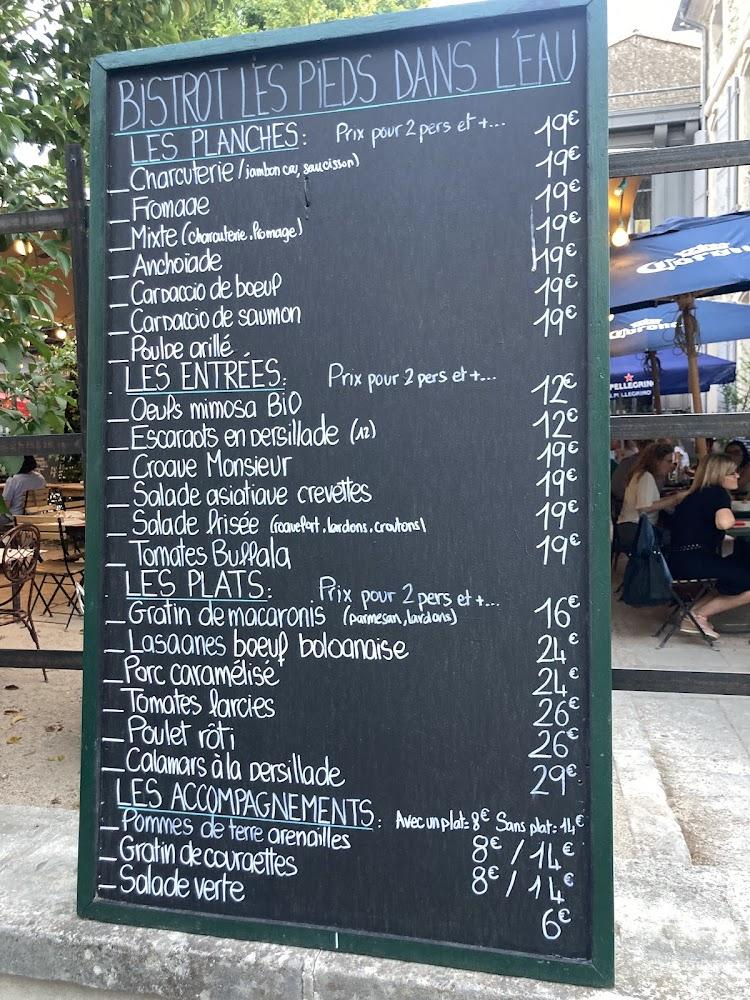 BISTROT LES PIEDS DANS L'EAU
LES PLANCHES: Prix pour 2 pers et +... 19€
_ Charcuterie (jambon cru, saucisson) 19€
_ Fromage 19€
_ Mixte (charcuterie, fromage) 19€
_ Anchoïade 19€
_ Carpaccio de boeuf 19€
_ Carpaccio de saumon 19€
_ Poulpe grillé
LES ENTRÉES: Prix pour 2 pers et +...
_ Oeufs mimosa BiO 12€
_ Escargots en persillade (12) 12€
_ Croque Monsieur 19€
_ Salade asiatique crevettes 19€
_ Salade frisée (roquefort, lardons, croutons) 19€
_ Tomates Buffala 19€
LES PLATS: Prix pour 2 pers et +...
_ Gratin de macaronis (parmesan, lardons) 16€
_ Lasagnes boeuf bolognaise 24€
_ Porc caramélisé 24€
_ Tomates farcies 26€
_ Poulet rôti 26€
_ Calamars à la persillade 29€
LES ACCOMPAGNEMENTS: Avec un plat: 8€ Sans plat: 14€
_ Pommes de terre grenailles 8€ / 14€
_ Gratin de courgettes 8€ / 14€
_ Salade verte 6€
Corona
Corona
PELLEGRINO
PELLEGRINO